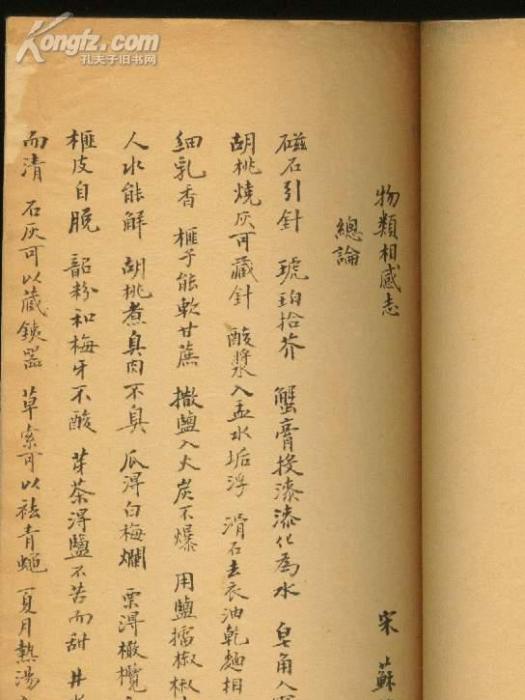 Kongfz.com
孔夫子旧书网
物類相感志　　宋　蘇
總論
磁石引針　琥珀拾芥　蟹膏投漆漆化為水　皂角入
胡桃燒灰可藏針　酸漿入盂水垢浮　滑石去衣油乾麵相
細乳香　榧子能軟甘蔗　撒鹽入火炭不爆　用鹽擂椒椒
人水能解　胡桃煮臭肉不臭　瓜淂白梅爛　栗淂橄欖
榧皮自脫　韶粉和梅牙不酸　芽茶淂鹽不苦而甜　井
而清　石灰可以藏鐵器　草索可以祛青蠅　夏月熱湯